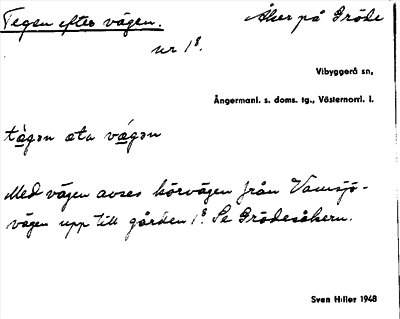 Tegen efter vägen.
Åker på Gröde
nr 1⁸.
Vibyggerå sn,
Ångermanl. s. doms. tg., Västernorrl. l.
tægən ætə vægən
Med vägen avses körvägen från Vansjö-
vägen upp till gården 1⁸. Se Grödesåkern.
Sven Hiller 1948